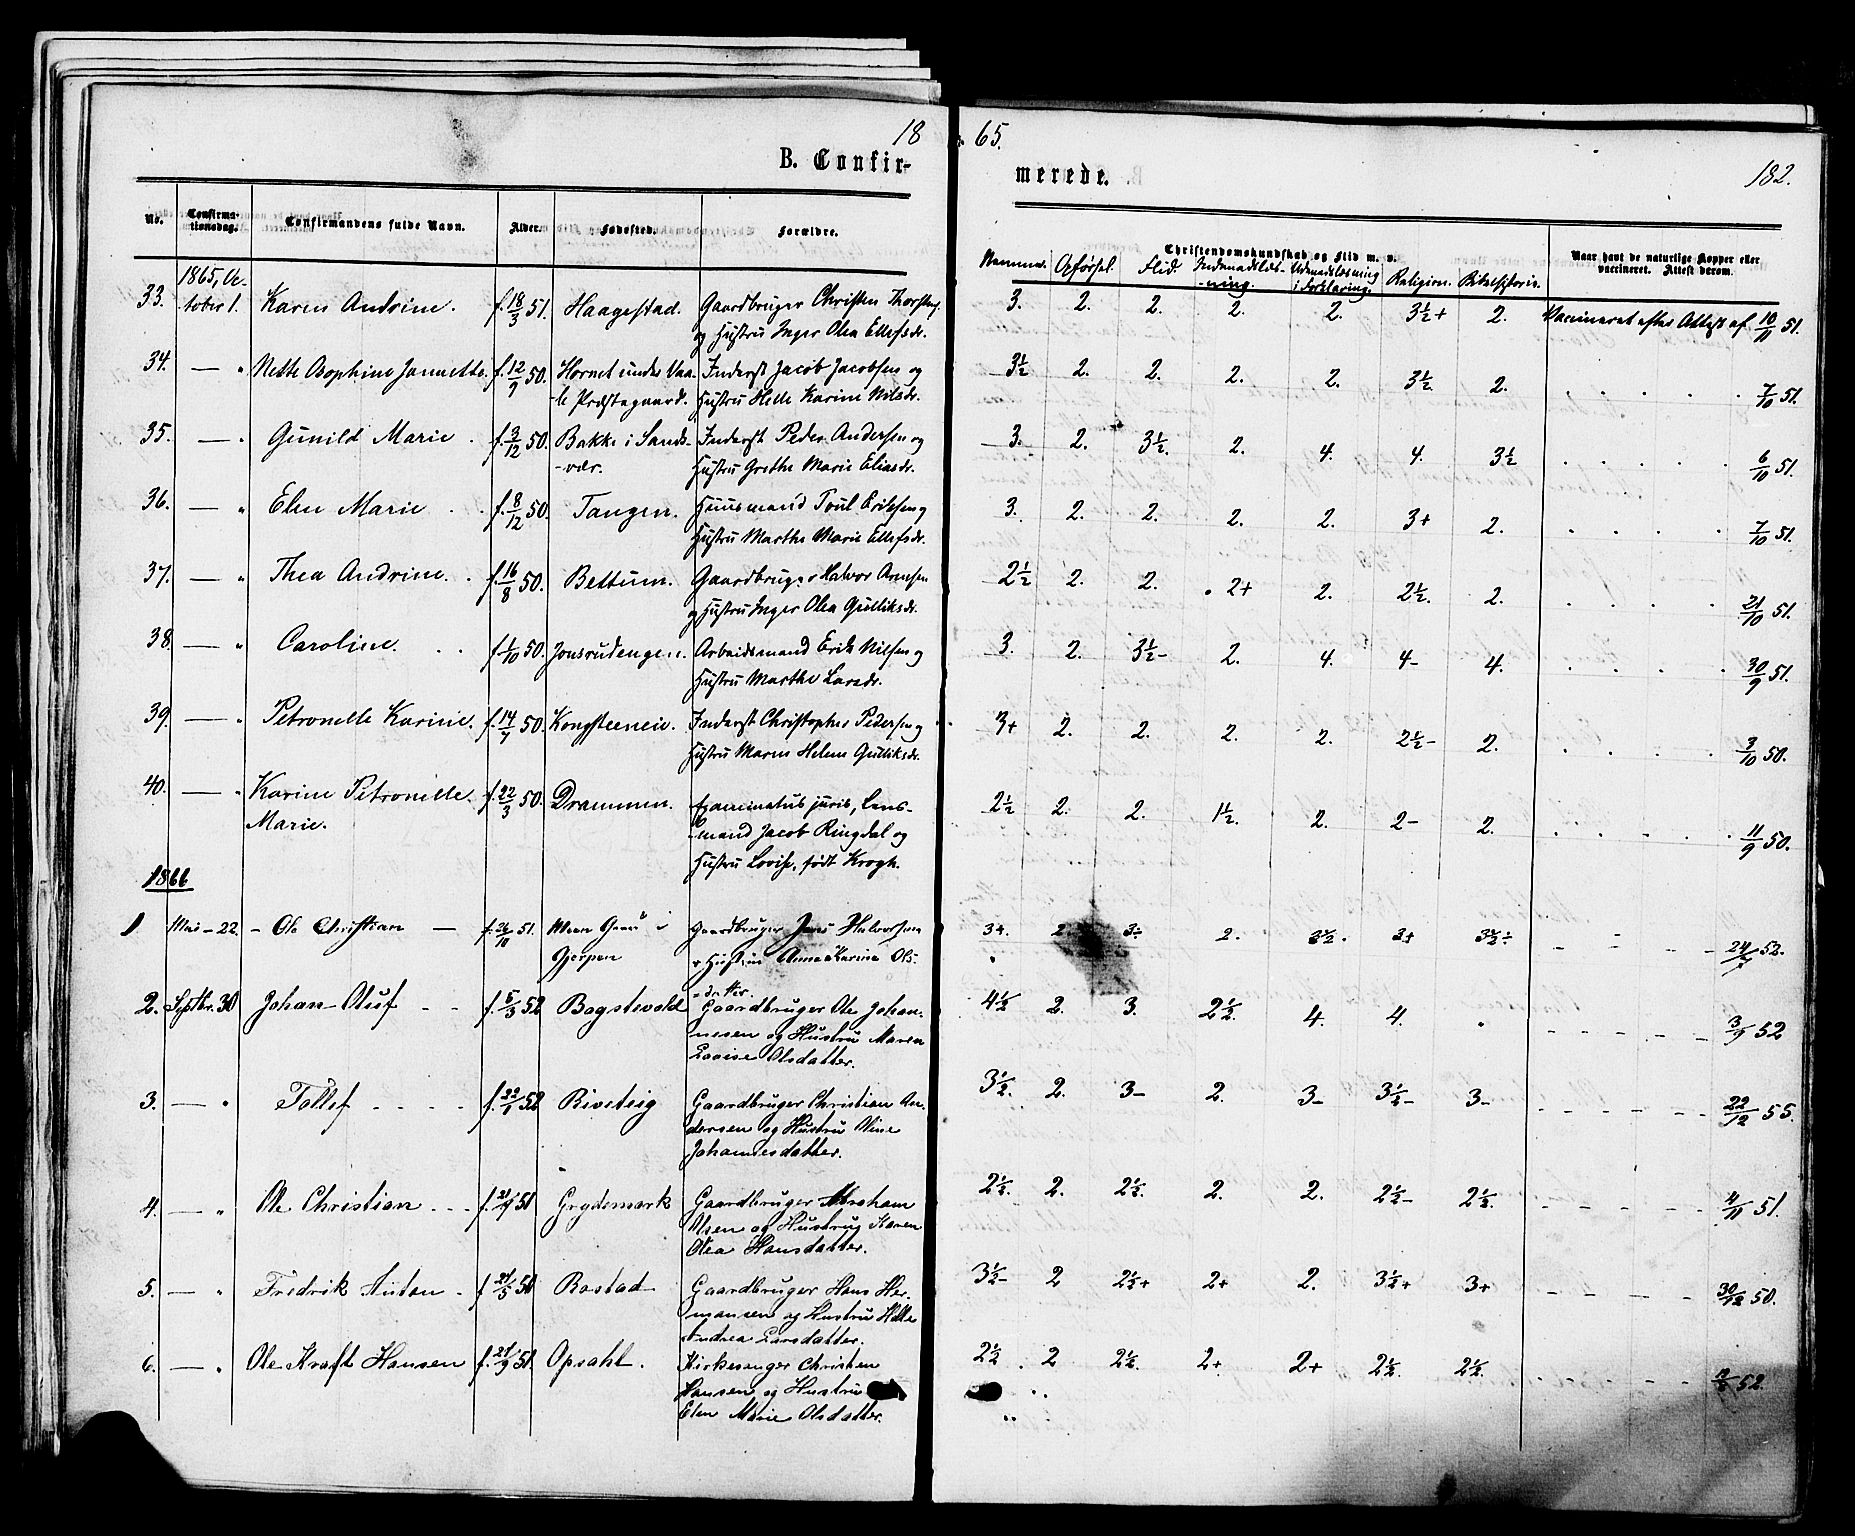 18
65.
B. Confir-
merede.
182.
No.
Confirma-
tionsdag.
Confirmandens fulde Navn.
Alder.
Fødested.
Forældre.
Christendomskundskab og Flid m. v.
Opførsel.
Flid.
Religion.
Naar havt de naturlige Kopper eller
vaccineret. Attest derom.
33. 1865, Oc-
tober 1. Karen Andrine. f. 18/3 51. Haagestad. Gaardbruger Christen Thorsens
og Hustru Inger Olea Ellefsdr. 3. 2. 2. 2. 2. 3½+ 2. Vaccineret efter Attest af 10/11 51.
34. — " Nette Josephine Jannette. f. 12/9 50. Hornet under Vaa-
le Præstegaard. Inderst Jacob Jacobsen og
Hustru Helle Karine Nilsdr. 3½ 2. 2. 2. 2. 3½ 2. 7/10 51.
35. — " Gunild Marie. f. 3/12 50. Bakke i Sands-
-vær. Inderst Peder Andersen og
Hustru Grethe Marie Eliasdr. 3. 2. 3½. 2. 4. 4. 3½ 6/10 51.
36. — " Elen Marie f. 8/12 50. Tangen. Huusmand Poul Eriksen og
Hustru Marthe Marie Ellefsdr. 3. 2. 2. 2. 2. 3+ 2. 7/10 51.
37. — " Thea Andrine. f. 16/8 50. Bettum. Gaardbruger Halvor Arnesen
og Hustru Inger Olea Gulliksdr. 2½ 2. 2. 2+ 2. 2½. 2. 21/10 51.
38. — " Caroline. f. 1/10 50. Jonsrudengen. Arbeidsmand Erik Nilsen og
Hustru Marthe Larsdr. 3. 2. 3½- 2. 4. 4- 4. 30/9 51.
39. — " Petronelle Karine. f. 14/7 50. Kongsteeneie. Inderst Christopher Pedersen og
Hustru Maren Helene Gulliksdr. 3+ 2. 2. 2. 2. 2½- 2. 3/10 50.
40. — " Karine Petronelle
Marie. f. 22/3 50. Drammen. Examinatus juris, Lens-
-mand Jacob Ringdal og
Hustru Lovise, født Krogh. 2½ 2. 2. 1½. 2. 2- 2. 11/9 50.
1866
1 Mai - 22. - Ole Christian — f. 26/10 51. Gjerpen Gaardbruger Jens Halvorsen
Hustru Anna Karine Ols-
datter. 2. 2. 3+ 52.
2. Septbr. 30 Johan Oluf f. 5/3 52 Bogstvold Gaardbruger Ole Johan-
nesen og Hustru Maren
Lovise Olsdatter. 4½ 2. 3. 2½. 4. 4. " 3/9 52
3. — " Tollef f. 22/1 52 Bivsteig Gaardbruger Christian An-
dersen og Hustru Oline
Johannesdatter. 3½. 2. 3- 2. 3- 3½- 3- 22/12 55.
4. — " Ole Christian f. 51 Grydemark Gaardbruger Abraham
Olsen og Hustrug Karen
Olea Hansdatter. 2½. 2. 2½. 2. 2. 2½- 2½. 4/11 51.
5. — " Fredrik Anton f. 21/5 51 Bostad Gaardbruger Hans Her-
mansen og Hustru Helle
Andrea Larsdatter. 3½- 2 2½+ 2+ 2. 3½+ 3+ 30/12 50.
6. — " Ole Kraft Hansen f. 21/9 51 Opsahl. Kirkesanger Christen
Hansen og Hustru
Elen Marie Olsdatter. 2½ 2 2½. 2+ 2+ 2½. 2½. 52.